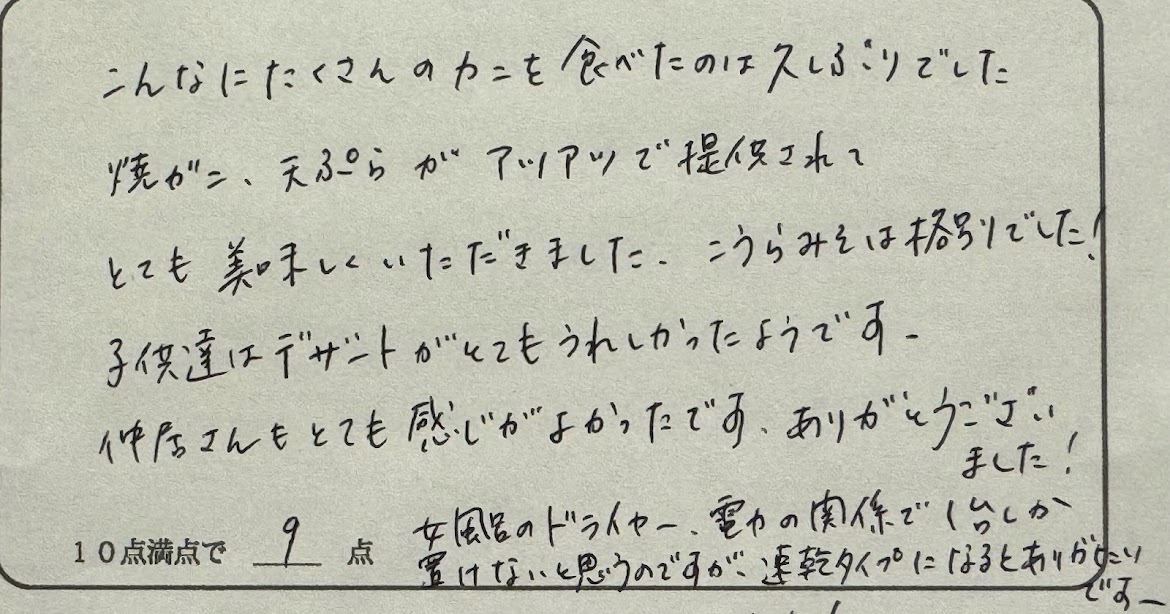 こんなにたくさんのカニを食べたのは久しぶりでした
焼がニ、天ぷらがアツアツで提供されて
とても美味しくいただきました、こうらみそは格別でした！
子供達はデザートがとてもうれしかったようです。
仲居さんもとても感じがよかったです、ありがとうござい
ました！
10点満点で 9 点
女風呂のドライヤー、電力の関係で1台しか
置けないと思うのですが、速乾タイプになるとありがたい
です。